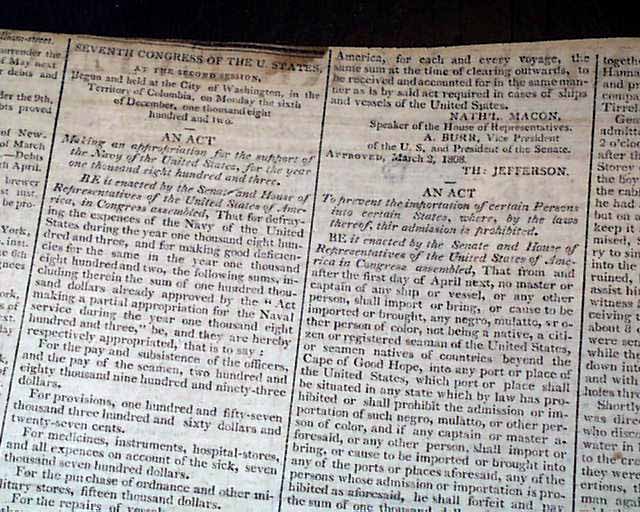 SEVENTH CONGRESS OF THE U. STATES,
AT THE SECOND SESSION,
Begun and held at the City of Washington, in the
Territory of Columbia, on Monday the sixth
of December, one thousand eight
hundred and two.
AN ACT
Making an appropriation for the support of
the Navy of the United States, for the year
one thousand eight hundred and three.
BE it enacted by the Senate and House of
Representatives of the United States of Ame-
rica, in Congress assembled, That for defray-
ing the expences of the Navy of the United
States during the year one thousand eight hun-
dred and three, and for making good deficien-
cies for the same in the year one thousand
eight hundred and two, the following sums, in-
cluding therein the sum of one hundred thou-
sand dollars already approved by the "Act
making a partial appropriation for the Naval
service during the year one thousand eight
hundred and three," be, and they are hereby
respectively appropriated, that is to say:
For the pay and subsistence of the officers,
and the pay of the seamen, two hundred and
eighty thousand nine hundred and ninety-three
dollars.
For provisions, one hundred and fifty-seven
thousand three hundred and sixty dollars and
twenty-seven cents.
For medicines, instruments, hospital-stores,
and all expences on account of the sick, seven
thousand seven hundred dollars.
For the purchase of ordnance and other mi-
litary stores, fifteen thousand dollars.
For the repairs of vessels
America, for each and every voyage, the
same sum at the time of clearing outwards, to
be received and accounted for in the same man-
ner as is by said act required in cases of ships
and vessels of the United States.
NATH'L. MACON,
Speaker of the House of Representatives.
A. BURR, Vice President
of the U. S, and President of the Senate.
APPROVED, March 2, 1808.
TH: JEFFERSON.
AN ACT
To prevent the importation of certain Persons
into certain States, where, by the laws
thereof, this admission is prohibited.
BE it enacted by the Senate and House of
Representatives of the United States of Ame-
rica in Congress assembled, That from and
after the first day of April next, no master or
captain of any ship or vessel, or any other
person, shall import or bring, or cause to be
imported or brought, any negro, mulatto, or o-
ther person of color, not being a native, a citi-
zen or registered seaman of the United States,
or seamen natives of countries beyond the
Cape of Good Hope, into any port or place of
the United States, which port or place shall
be situated in any state which by law has pro-
hibited or shall prohibit the admission or im-
portation of such negro, mulatto, or other per-
son of color, and if any captain or master a-
foresaid, or any other person, shall import or
bring, or cause to be imported or brought into
any of the ports or places aforesaid, any of the
persons whose admission or importation is pro-
hibited as aforesaid, he shall forfeit and pay
the sum of one thousand